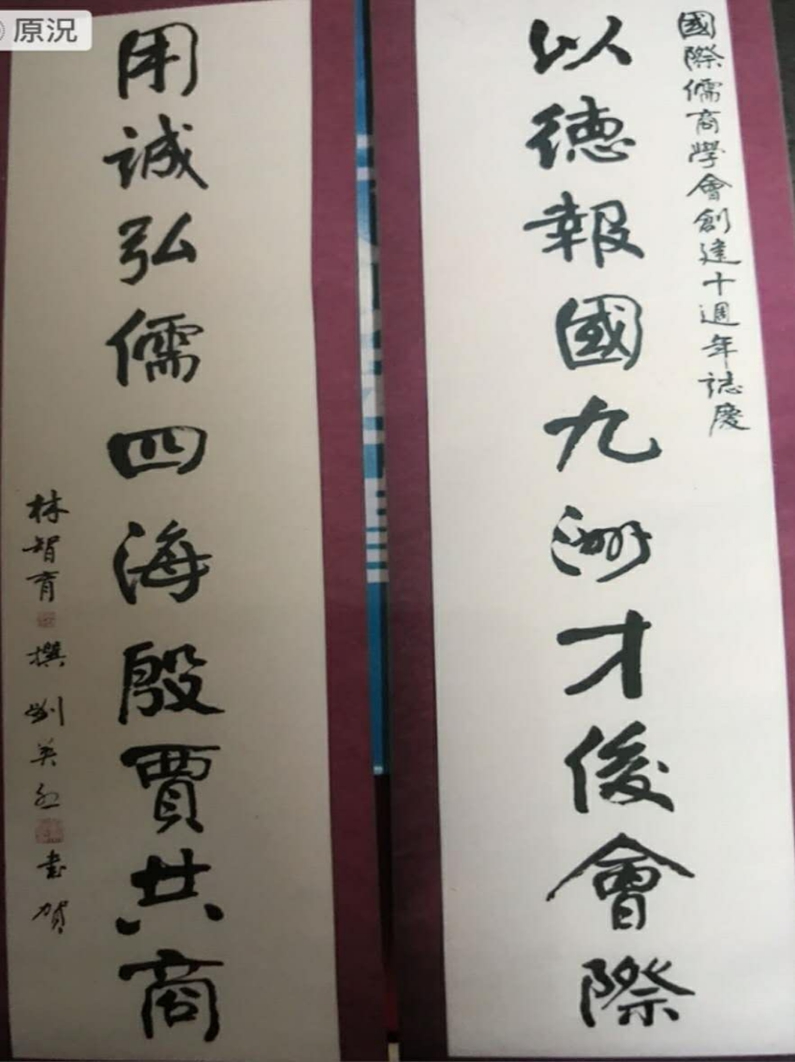 原況
國際儒商學會創建十週年誌慶
以德報國九洲才俊會際
用誠弘儒四海殷賈共商
林智育撰劉美 書賀